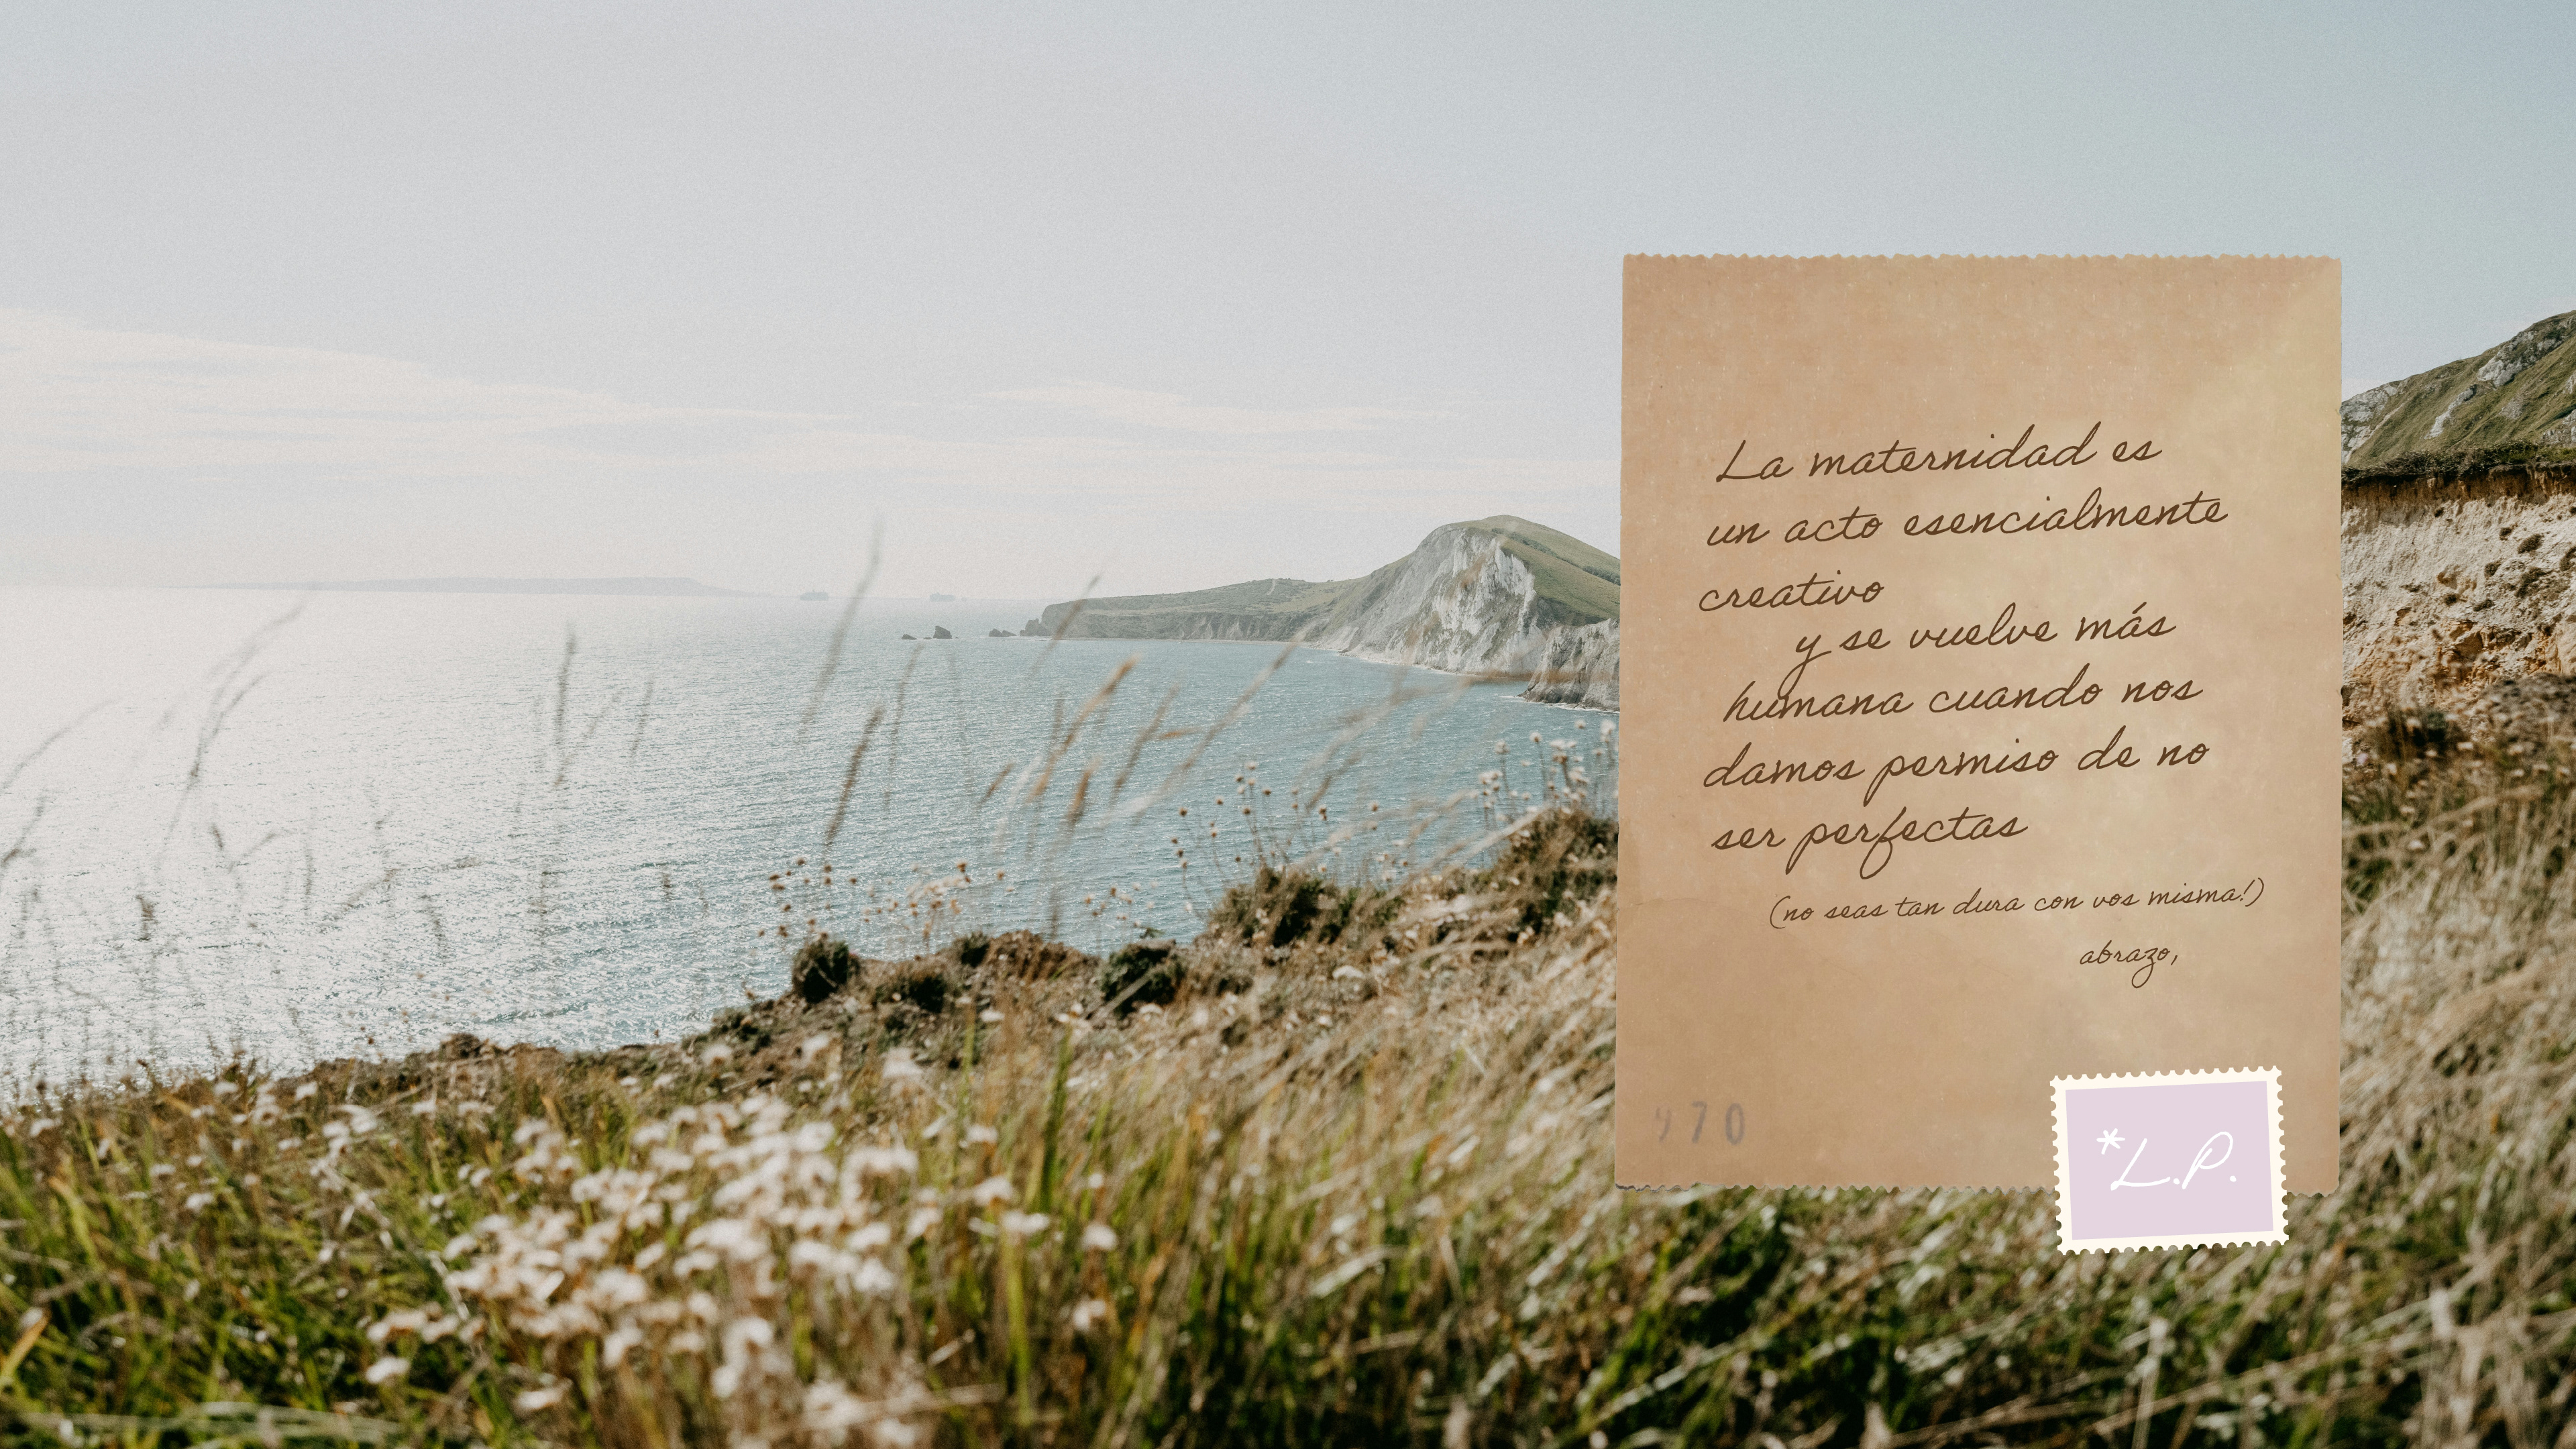 La maternidad es
un acto esencialmente
creativo
y se vuelve más
humana cuando nos
damos permiso de no
ser perfectas
(no seas tan dura con vos misma!)
abrazo,
*L.P.